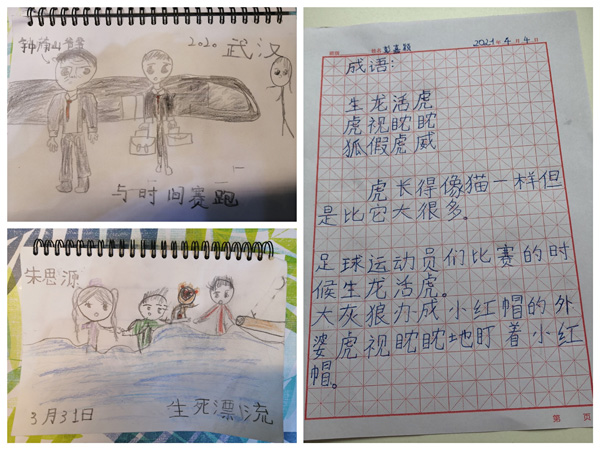 钟茂山
2020 武汉
与时间赛跑
朱思源
3月31日
生死漂流
2021年4月4日
成语：
生龙活虎
虎视眈眈
狐假虎威
虎长得像猫一样但
是比它大很多。
足球运动员们比赛的时
候生龙活虎。
大灰狼办成小红帽的外
婆虎视眈眈地盯着小红
帽。
第 页